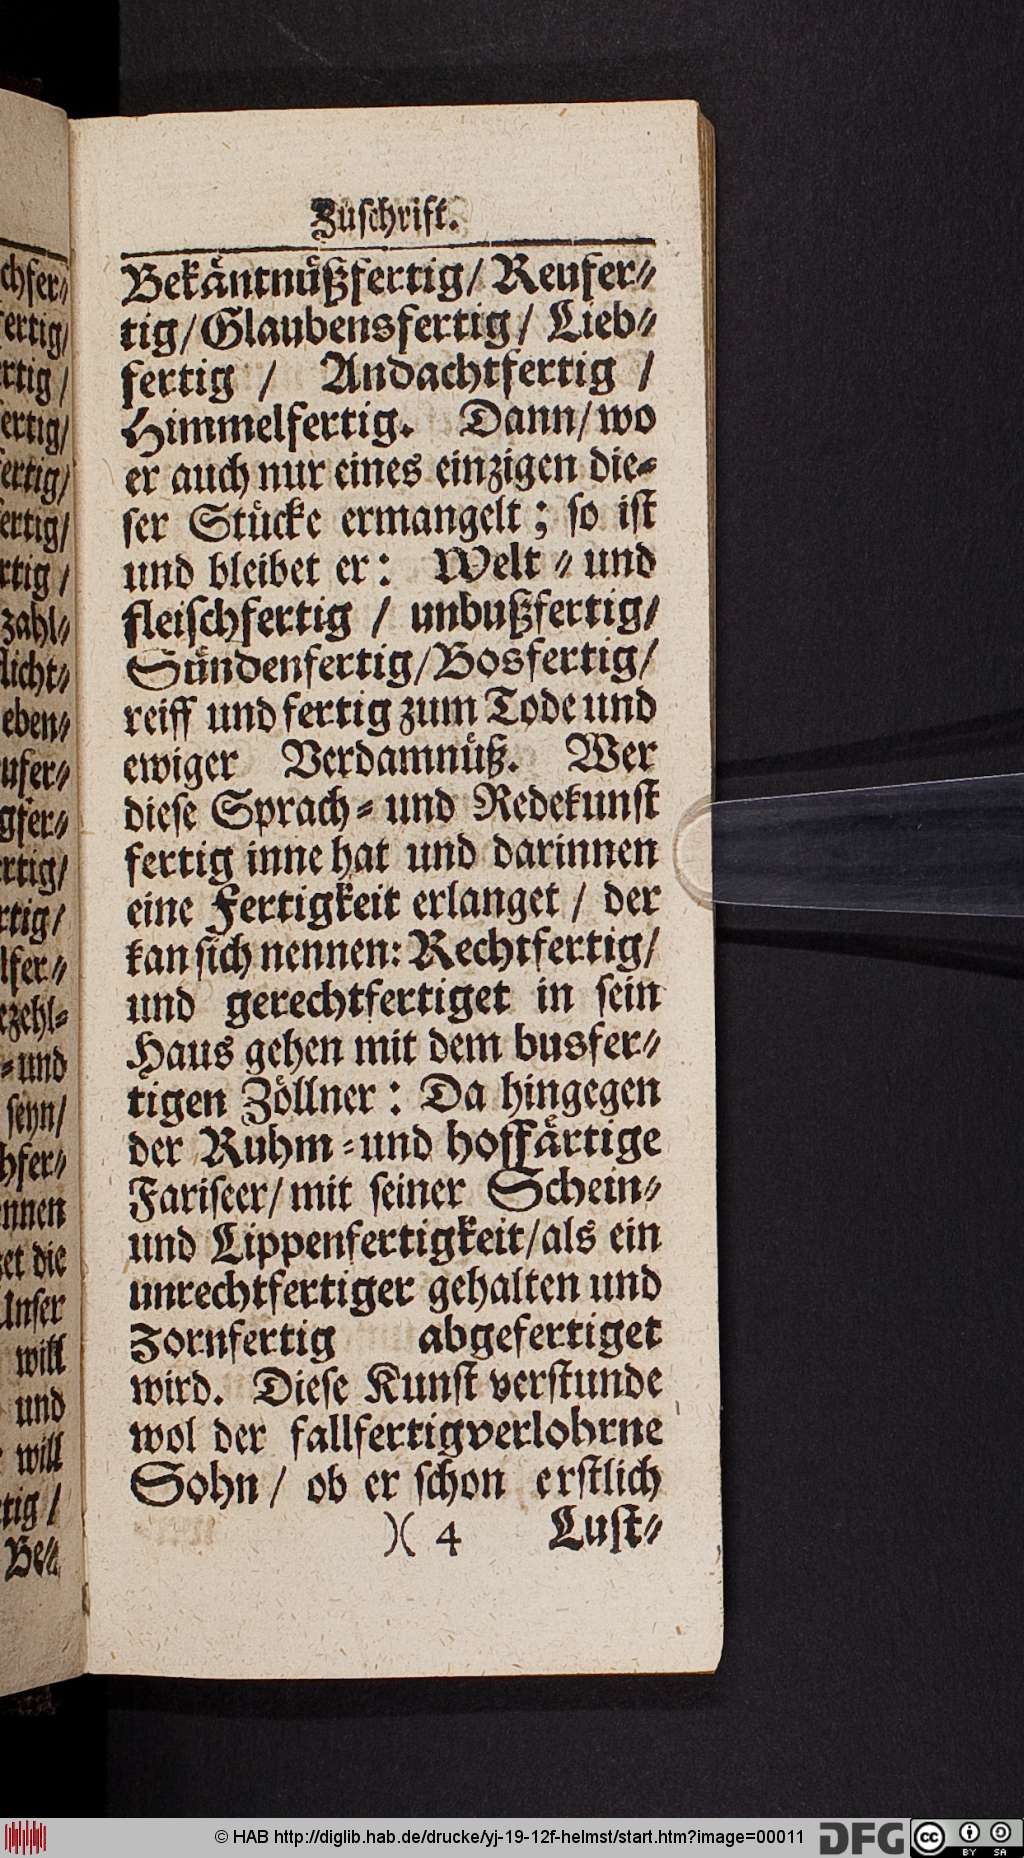 Zuſchrift.
Bekäntnüßfertig/ Reufer⸗
tig/ Glaubensfertig/ Lieb⸗
fertig / Andachtfertig /
Himmelfertig. Dann/ wo
er auch nur eines einzigen die⸗
ſer Stücke ermangelt; ſo iſt
und bleibet er: Welt ⸗ und
fleiſchfertig / unbußfertig/
Sündenfertig/ Bosfertig/
reiff und fertig zum Tode und
ewiger Verdamnüß. Wer
dieſe Sprach ⸗ und Redekunſt
fertig inne hat und darinnen
eine Fertigkeit erlanget / der
kan ſich nennen: Rechtfertig/
und gerechtfertiget in ſein
Haus gehen mit dem busfer⸗
tigen Zöllner: Da hingegen
der Ruhm ⸗ und hoffärtige
Fariſeer/ mit ſeiner Schein⸗
und Lippenfertigkeit/ als ein
unrechtfertiger gehalten und
Zornfertig abgefertiget
wird. Dieſe Kunſt verſtunde
wol der fallfertigverlohrne
Sohn / ob er ſchon erſtlich
)( 4 Luſt⸗
chfer⸗
fertig/
rtig /
ertig/
ertig/
ertig/
rtig /
zahl⸗
licht⸗
eben⸗
ufer⸗
gfer⸗
rtig/
rtig/
lfer⸗
zehl⸗
⸗ und
ſeyn/
hfer⸗
nnen
et die
Unſer
will
und
will
tig /
Be⸗
© HAB http://diglib.hab.de/drucke/yj-19-12f-helmst/start.htm?image=00011
DFG
cc
BY SA